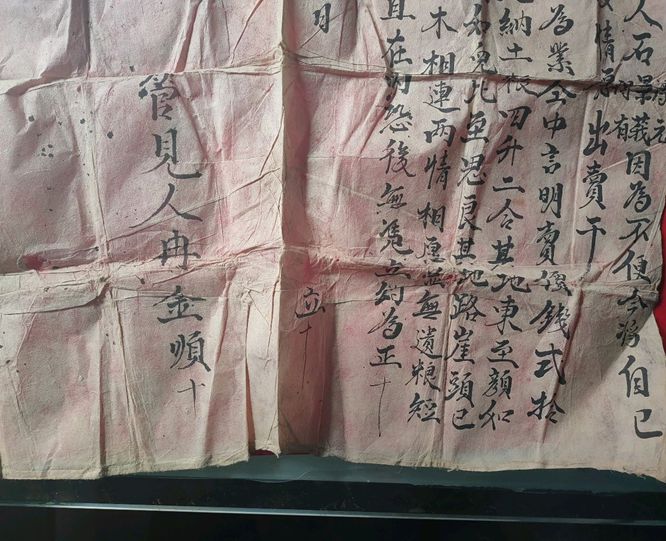 人石景義因為不便今將自己
出賣于
為業仝中言明賣價錢弍拾
納土粮四升二合其地東至顔如
北至思良其地路崖頭已
木相連兩情相愿並無遺粮短
且在内恐後無凴立約為正十
月
立十
管見人冉金順十